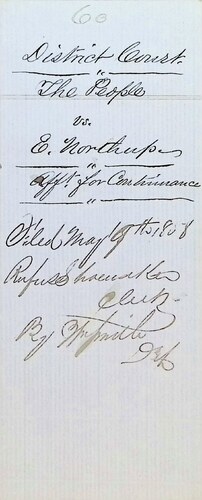 60
District Court
"
The People
vs.
E. Northup
"
Afft. for Continuance
"
Filed May 19th 1858
Rufus Shoemaker
Clerk
By
Dep